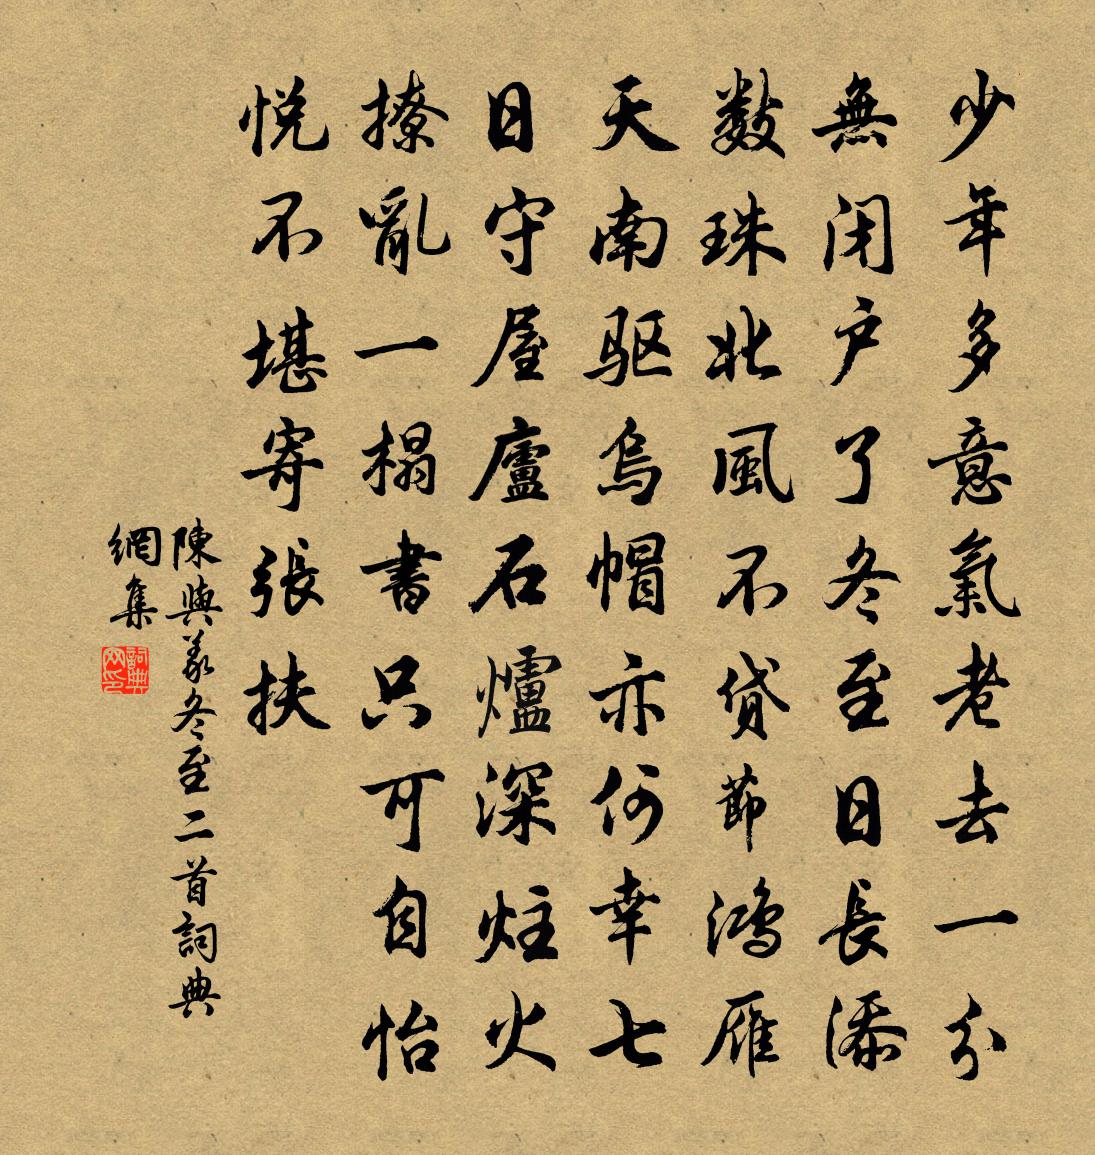 少年多意氣老去一分
無闭户了冬至日長添
數珠北風不貸節鴻雁
天南驱烏帽亦何幸七
日守屋廬石爐深炷火
撩亂一榻書只可自怡
悦不堪寄張扶
陳與義冬至二首詞典
網集
詞典
网印